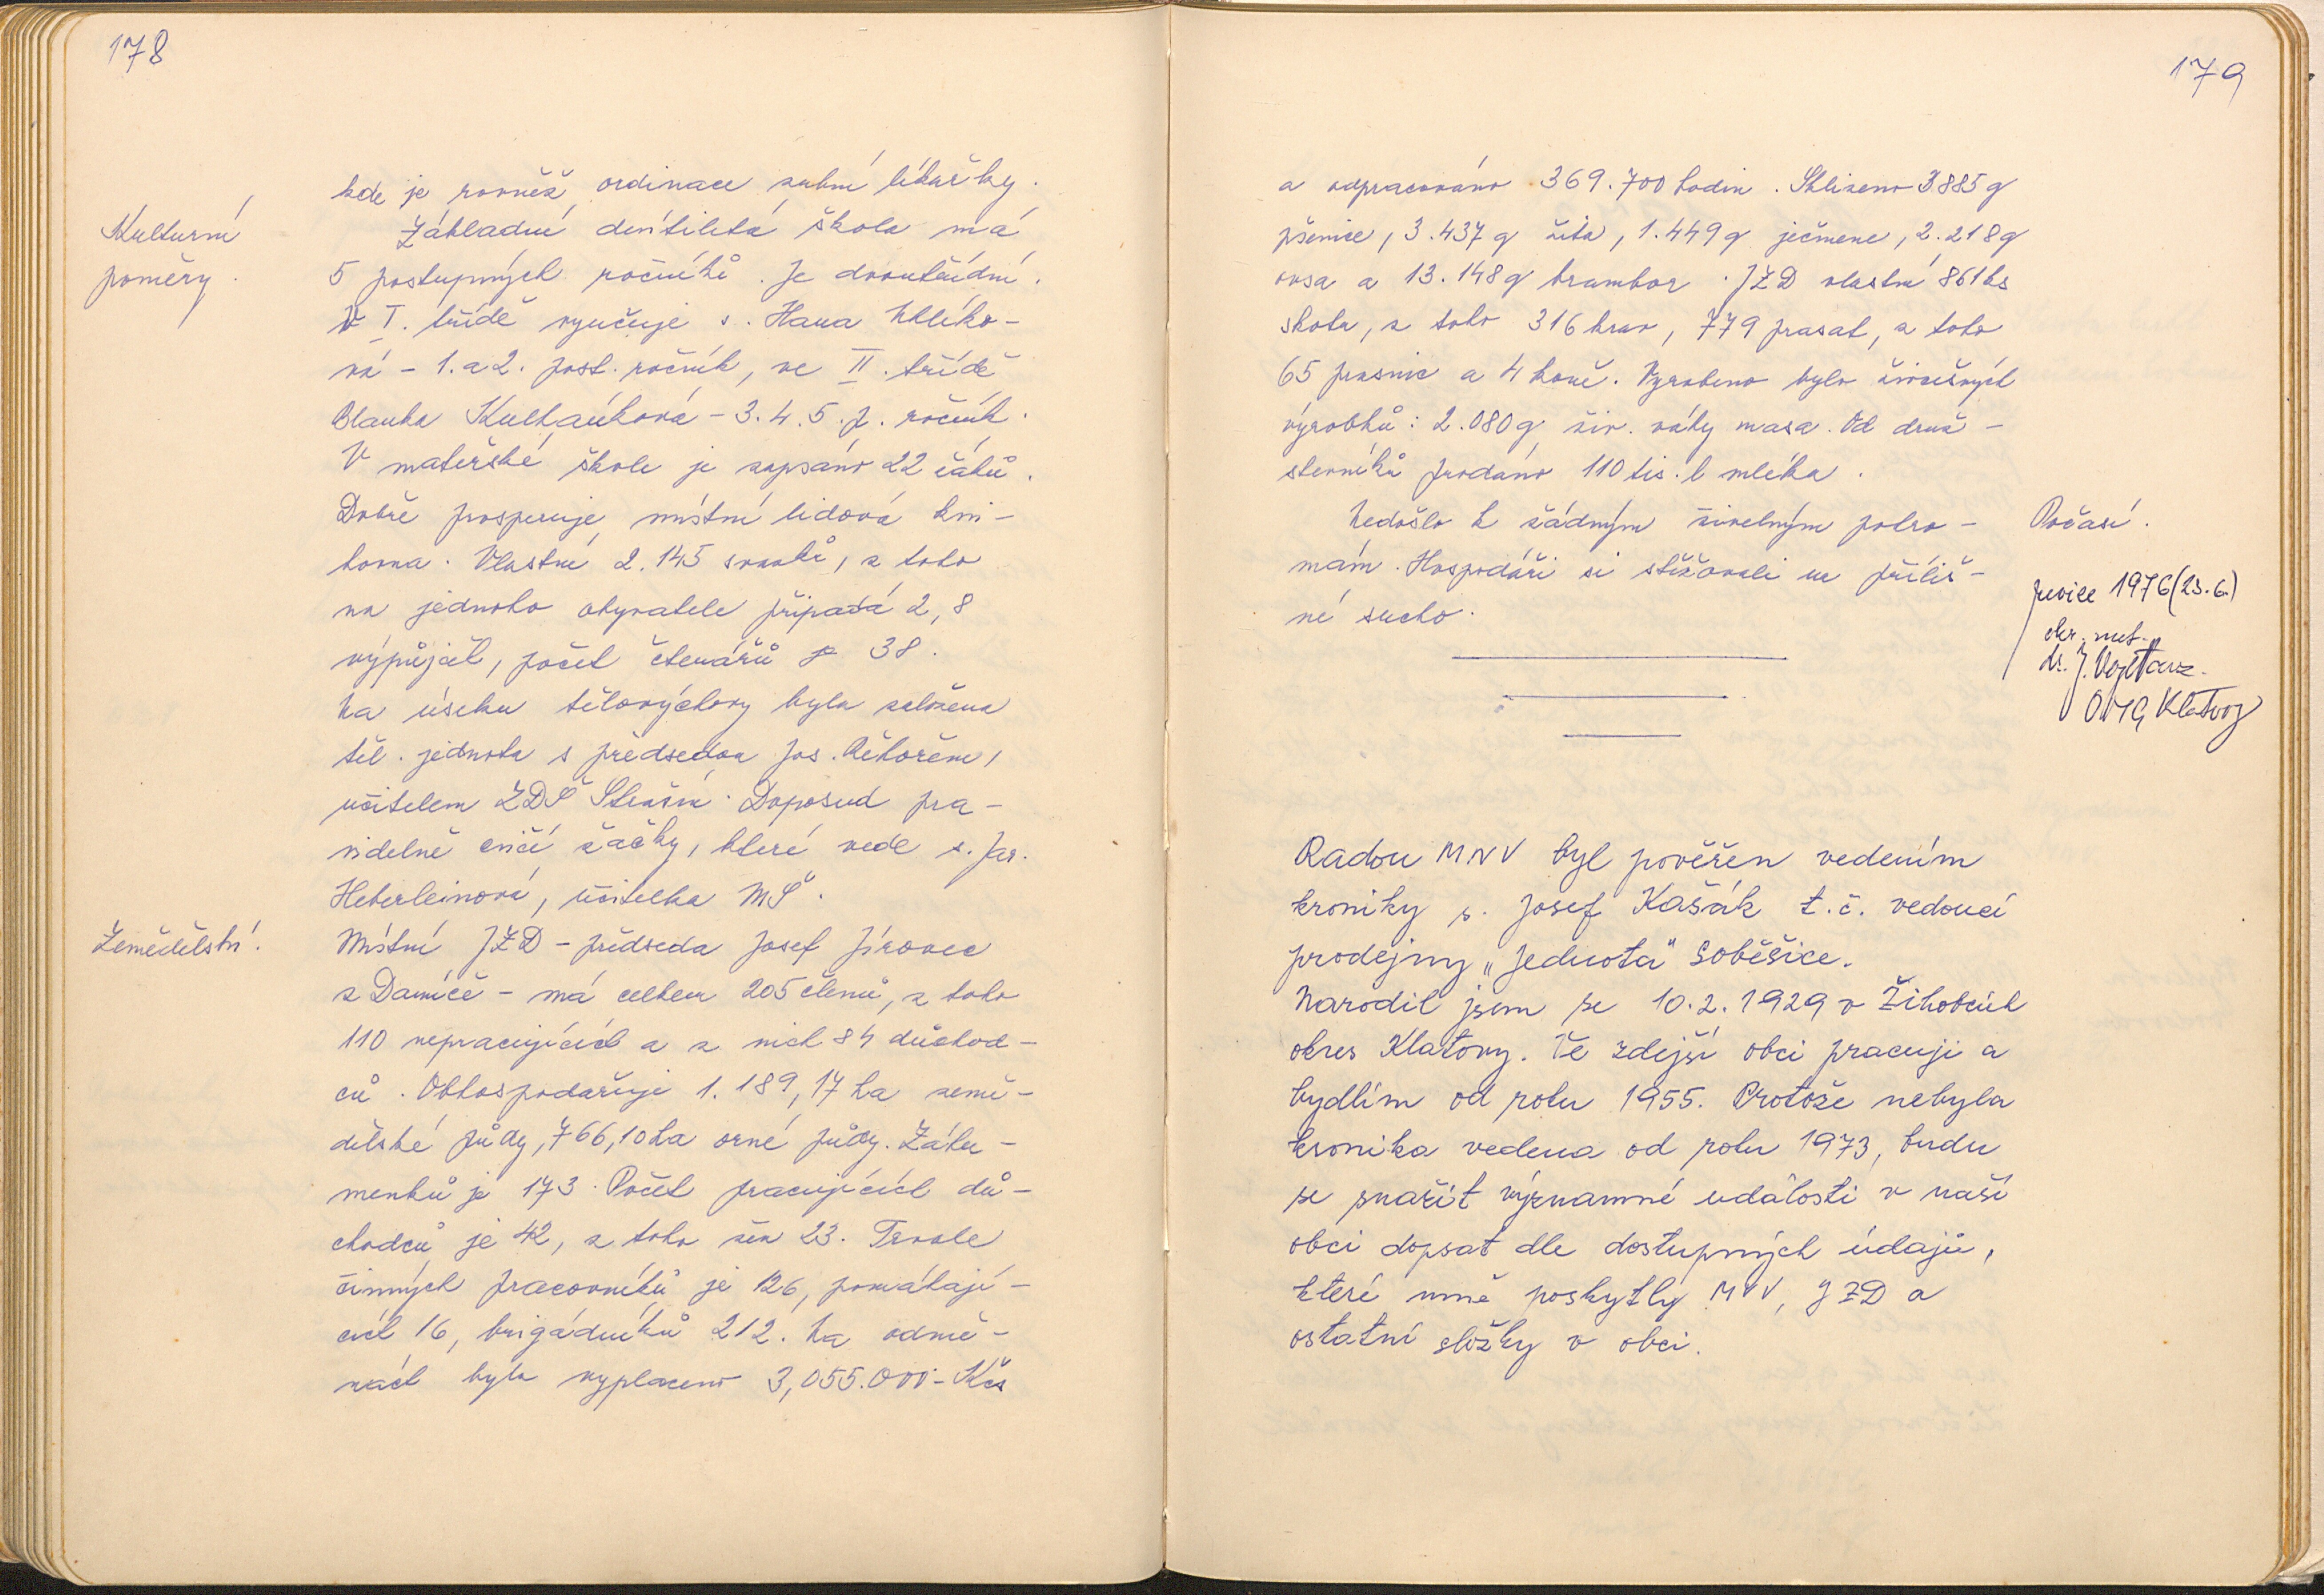 178
Kulturní
poměry.
kde je rovněž ordinace zubní lékařky.
Základní devítiletá škola má
5 postupných ročníků. Je dvoutřídní.
V I. třídě vyučuje s. Hana Uhlíko-
vá - 1. a 2. post. ročník, ve II. třídě
Blanka Kulhánková - 3. 4. 5. p. ročník.
V mateřské škole je zapsáno 22 žáků.
Dobře prosperuje místní lidová kni-
hovna. Vlastní 2.145 svazků, z toho
na jednoho obyvatele připadá 2,8
výpůjček, počet čtenářů je 38.
Na úseku tělovýchovy byla založena
těl. jednota s předsedou Jos.
učitelem ZDŠ Strašín. Doposud pra-
videlně cvičí žačky, které vede s. Jar.
Heberleinová, učitelka MŠ.
Zemědělství.
Místní JZD - předseda Josef Jírovec
z Damíče - má celkem 205 členů, z toho
110 nepracujících a z nich 84 důchod-
ců. Obhospodařuje 1.189,17 ha země-
dělské půdy, 766,10 ha orné půdy. Záhu-
menků je 173. Počet pracujících dů-
chodců je 42, z toho žen 23. Trvale
činných pracovníků je 126, pomáhají-
cích 16, brigádníků 212. Na odmě-
nách bylo vyplaceno 3,055.000 - Kčs
179
a odpracováno 369.700 hodin. Sklizeno 3885 q
pšenice, 3.437 q žita, 1.449 q ječmene, 2.218 q
ovsa a 13.148 q brambor. JZD vlastní 861 ks
skotu, z toho 316 krav, 779 prasat, z toho
65 prasnic a 4 koně. Vyrobeno bylo živočišných
výrobků: 2.080 q živ. váhy masa. Od druž-
stevníků prodáno 110 tis. l mléka.
Počasí.
Nedošlo k žádným živelným pohro-
mám. Hospodáři si stěžovali na příliš-
né sucho.
revize 1976 (23.6.)
dr. J.
Klatovy
Radou MNV byl pověřen vedením
kroniky s. Josef Kašák t.č. vedoucí
prodejny "Jednota" Soběšice.
Narodil jsem se 10.2.1929 v Žihobcích
okres Klatovy. Ve zdejší obci pracuji a
bydlím od roku 1955. Protože nebyla
kronika vedena od roku 1973, budu
se snažit významné události v naší
obci dopsat dle dostupných údajů,
které mně poskytly MNV, JZD a
ostatní složky v obci.